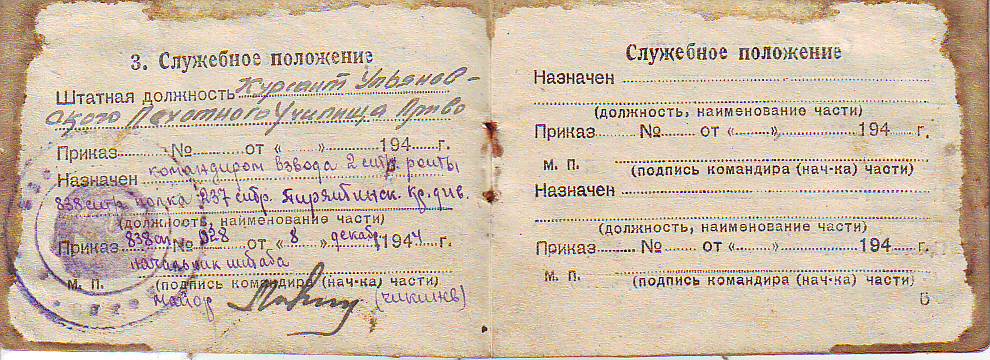 3. Служебное положение
Штатная должность Курсант Ульянов-
ского Пехотного Училища Приво
Приказ........№........от «......»........194......г.
Назначен командиром взвода 2 стр. роты
838 стр. полка 237 стр. Пирятинск. Кр. див.
(должность, наименование части)
Приказ 838 сп № 028 от «8» декабр. 1944 г.
начальник штаба
М. П. (подпись командира (нач-ка) части)
майор
Служебное положение
Назначен
(должность, наименование части)
Приказ........№........от «......»........194......г.
М. П. (подпись командира (нач-ка) части)
Назначен
(должность, наименование части)
Приказ........№........от «......»........194......г.
М. П. (подпись командира (нач-ка) части)
5